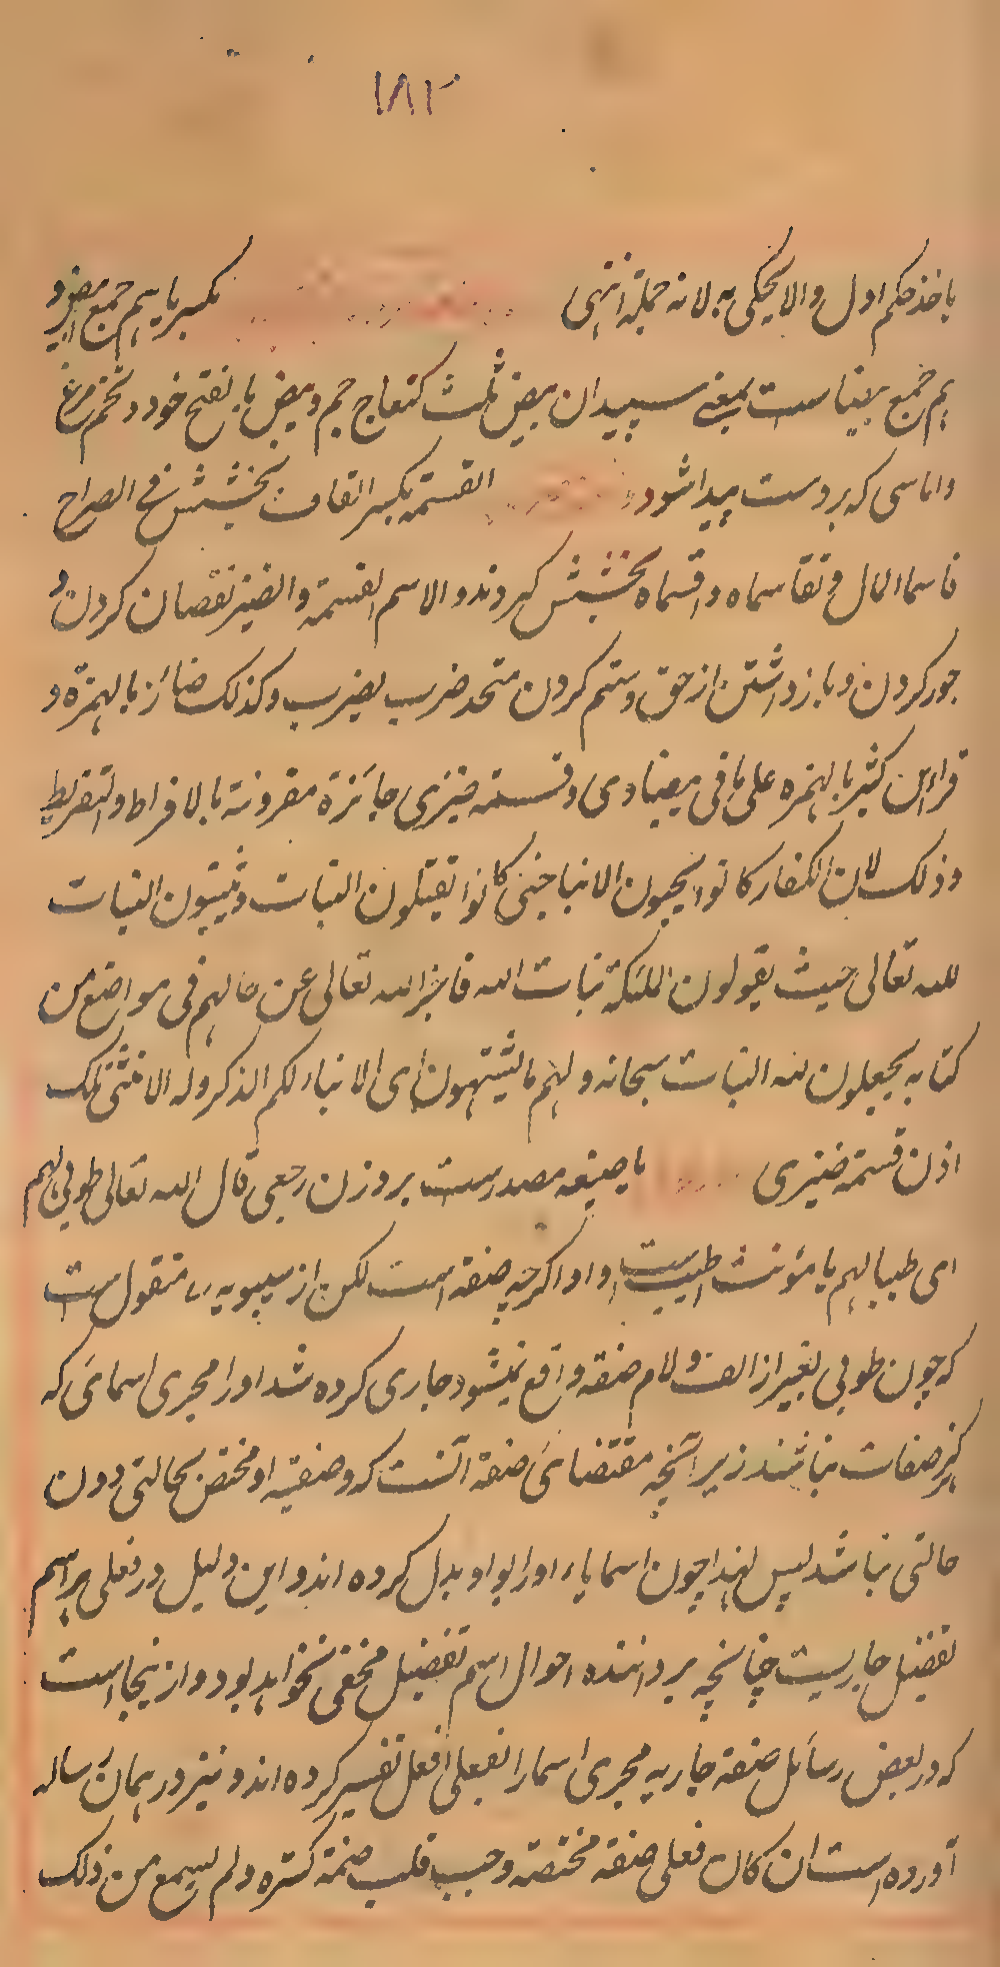 ۱۸۲
باخذ حکم اول والا یحکی به لانه جملة انتهی بکسر با یهم جمع بیض و
هم جمع بیضا ست بمعنی سپیدان بیض ثلث کنعاج جم و بیض با بفتح خود و تخم مرغ
واماسی که بر دست پیدا شود القسمة بکسر القاف بخشش فی الصراح
قاسما المال و تقاسماه و اقسماه بخشش کردند و الاسم القسمة و الضیز نقصان کردن و
جور کردن و باز داشتن از حق و ستم کردن متحد ضرب یضرب و کذلک ضائز بالهمزة و
قراء ابن کثیر بالهمزه علی ما فی بیضاوی و قسمته ضیزی جائزة مقرونة بالافراط و التفریط
وذلک لان الکفار کانوا یحبون الابنا حتی کانوا یقتلون البنات و یثبتون البنات
لله تعالی حیث یقولون الملئکة بنات الله فاخبر الله تعالی عن حالهم فی مواضع من
کتابه یجعلون لله البنات سبحانه ولهم ما یشتهون ای الابناء الکم الذکر وله الانثی تلک
اذن قسمة ضیزی یا صیغه مصدرست بر وزن رجعی قال الله تعالی طوبی لهم
ای طیبا لهم یا مؤنث اطیب است و او اگرچه صفة است لکن از سیبویه منقول ست
که چون طوبی بغیر از الف و لام صفة واقع نمیشود جاری کرده شد او را مجری اسمائ که
صفات نباشند زیرا نچه مقتضائ صفة آنست که وصفیه او مختص بحالتی دون
حالتی نباشد پس لهذا چون اسما یاء او را بواو بدل کرده اند و این دلیل در فعلی اسم
تفضیل جاریست چنانچه بر داننده احوال اسم تفضیل مخفی نخواهد بود و از ینجا است
که در بعض رسائل صفة جاریه مجری اسما را بفعلی افعل تفسیر کرده اند و نیز در همان رساله
آورده است ان کان فعلی صفة مختصة وجب قلب ضمة کسره و لم یسمع من ذلک